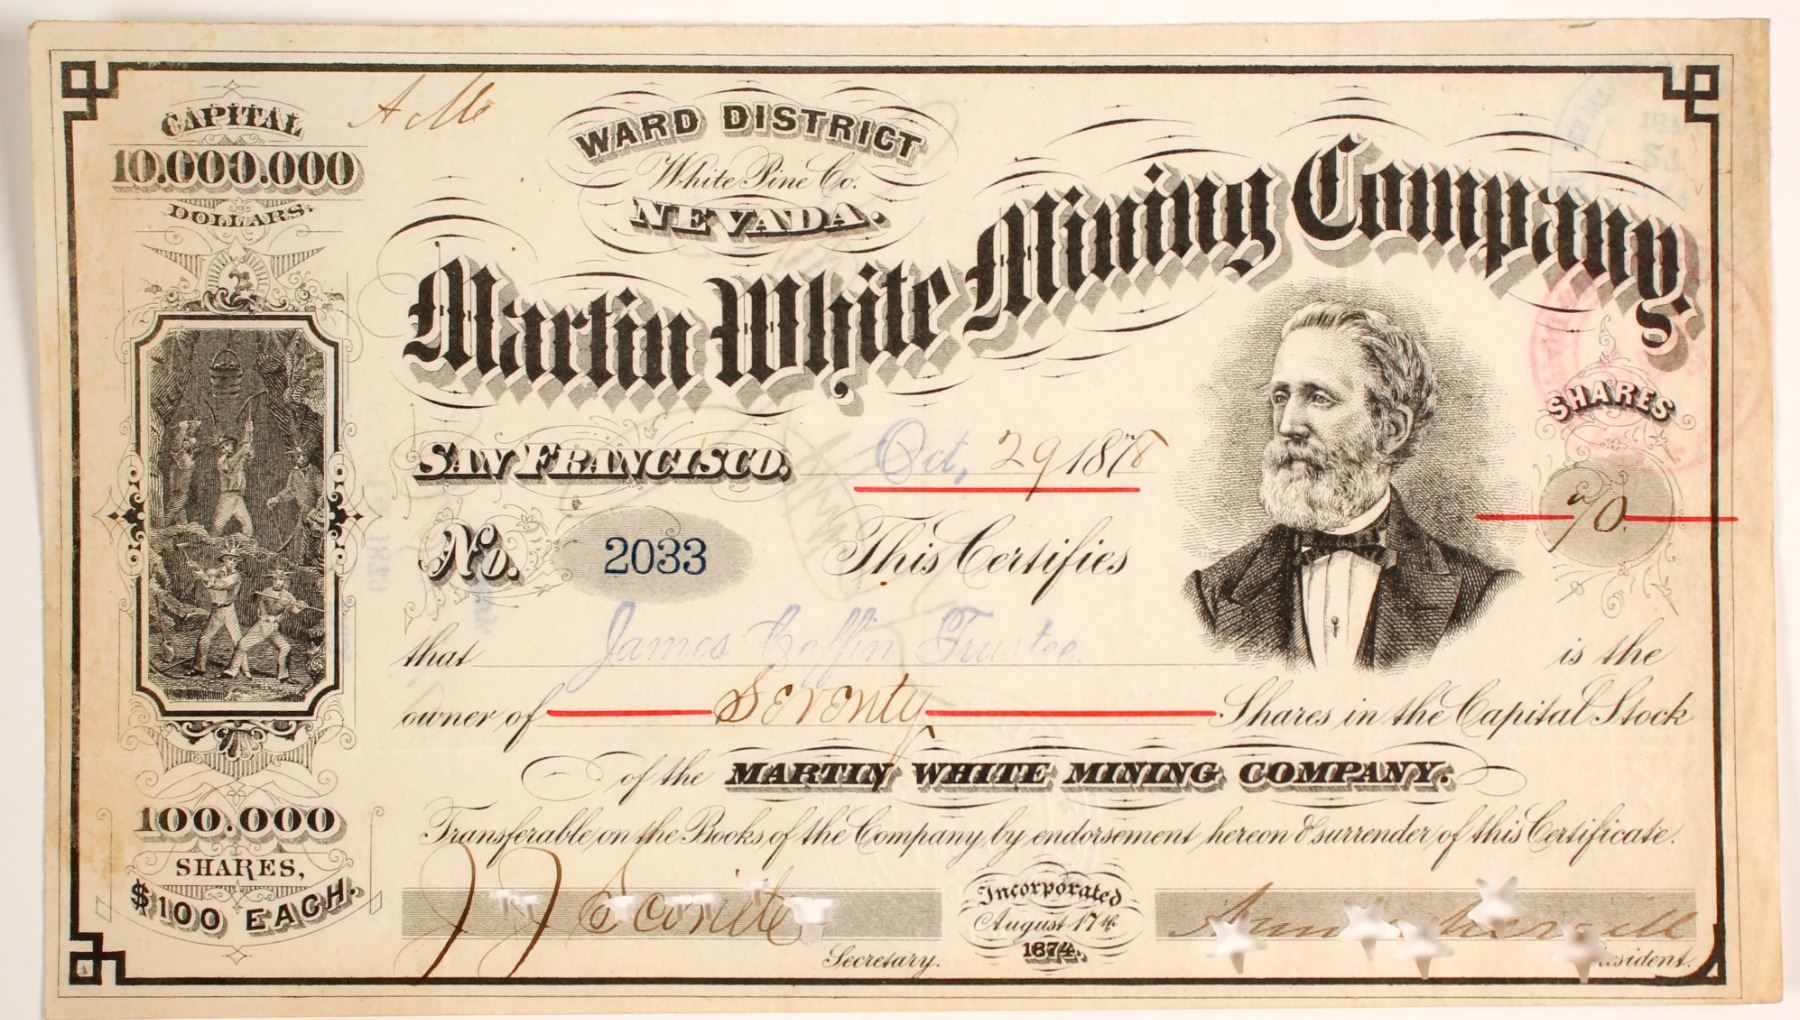 CAPITAL
10.000.000
DOLLARS.
WARD DISTRICT
White Pine Co.
NEVADA.
Martin White Mining Company.
SAN FRANCISCO, Oct, 29 1878
SHARES
70
No. 2033 This Certifies
that James Coffin Trustee is the
owner of Seventy Shares in the Capital Stock
of the MARTIN WHITE MINING COMPANY.
Transferable on the Books of the Company, by endorsement hereon & surrender of this Certificate.
100.000
SHARES,
$100 EACH.
Incorporated
August 17th
1874.
J J
Secretary.
President.